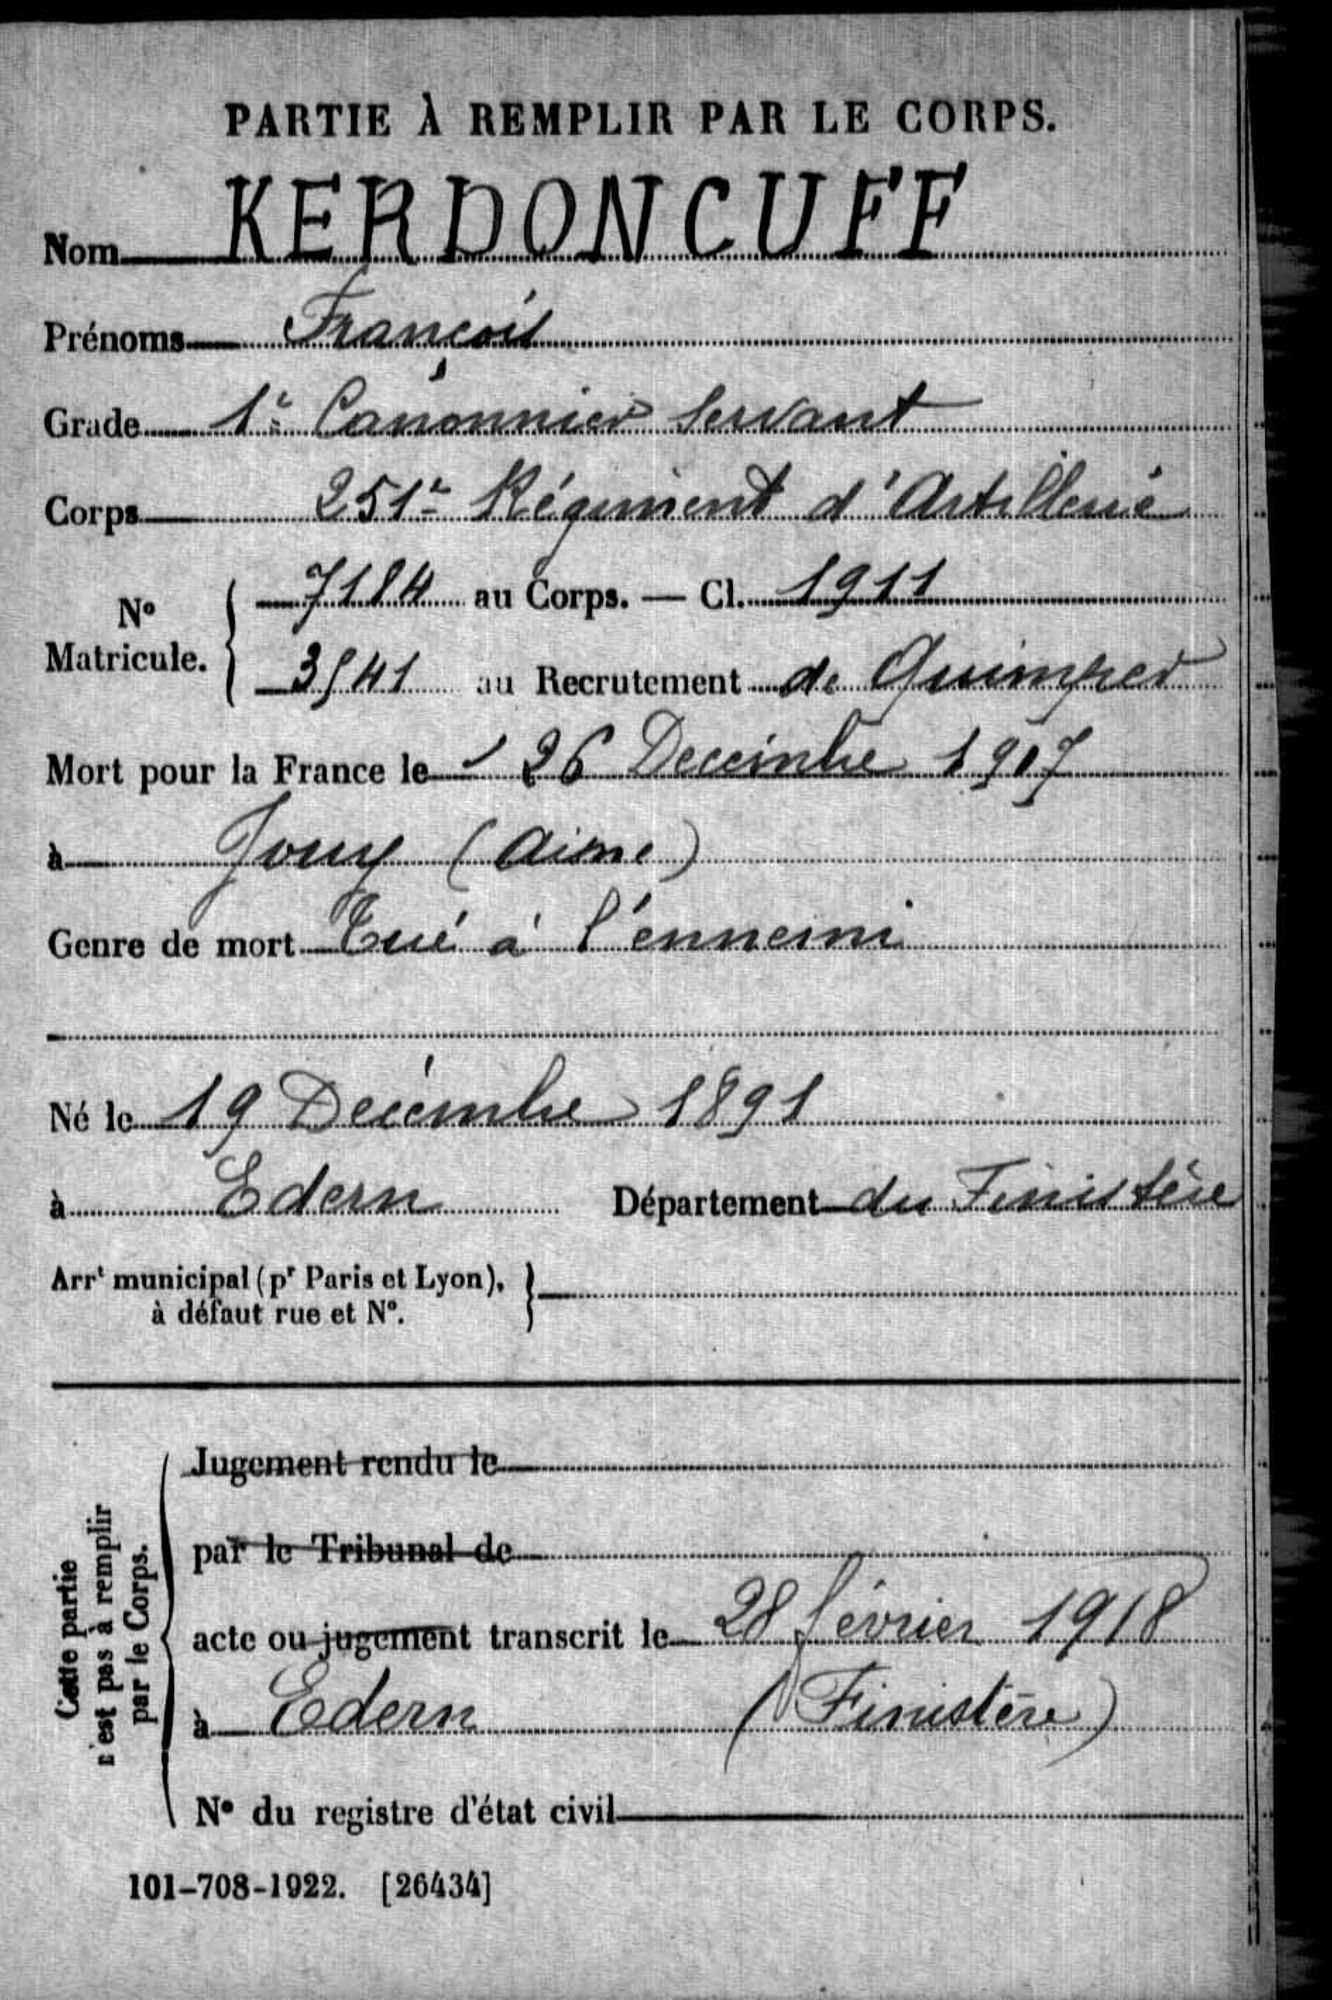 PARTIE À REMPLIR PAR LE CORPS.
Nom KERDONCUFF
Prénoms François
Grade 1e Canonnier Servant
Corps 251e Régiment d'Artillerie
No Matricule. 7184 au Corps. — Cl. 1911
3541 au Recrutement de Quimper
Mort pour la France le 26 Decembre 1917
à Jouy (Aisne)
Genre de mort Tué à l'ennemi
Né le 19 Décembre 1891
à Edern Département du Finistère
Arrt municipal (pr Paris et Lyon),
à défaut rue et No.
Cette partie
n'est pas à remplir
par le Corps.
Jugement rendu le
par le Tribunal de
acte ou jugement transcrit le 28 février 1918
à Edern (Finistère)
No du registre d'état civil
101-708-1922. [26434]